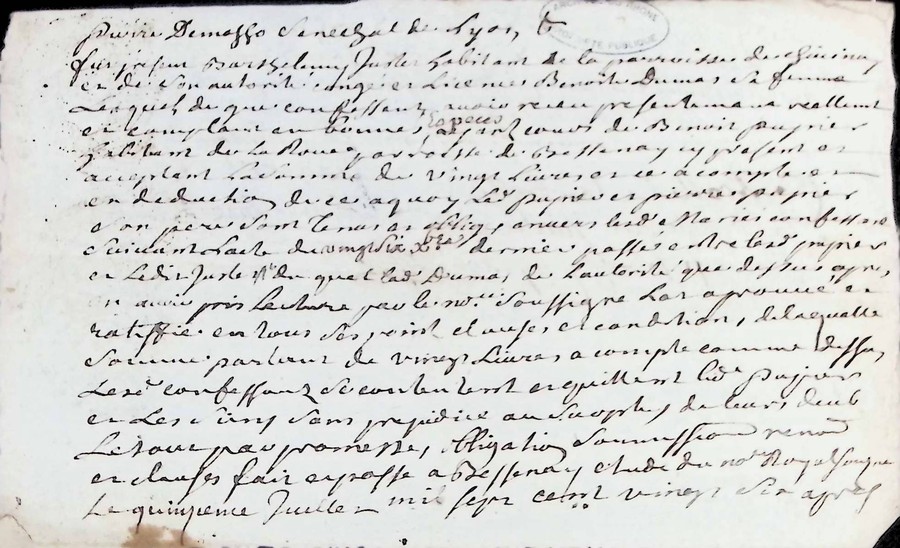 pierre Demasso Senechal de Lyon, &
furent Barthelemy Juste habitant de la parroisse de
et de Son autorité congé et Licence Benoite Dumas Sa femme
Lesquels de gre confessent avoir receu presentement reellement
et comptant en bonnes especes ayant cours de Benoit pupier
habitant de La Roue parroisse de Bessenay cy present et
acceptant La Somme de vingt Livres et ce a compte et
en deduction de ce a quoy Led. pupier et pierre pupier
Son pere Sont Tenus et obligés envers lesd. Mariés confessant
Suivant Lacte du vingt Six dernier passé entre lesd. pupier
et Ledit Juste duquel lad. Dumas de Lautorité que dessus apres
en avoir pris Lecture par le nore Soussigné La aprouvé et
ratiffie en tous Ses point clauses et condition, de laquelle
Somme partant de vingt Livres a compte comme dessus
Lesd. confessant Se contentent et quittent led. pupier
et Les Siens Sans prejudice au Surplus de leurs deub
Le tout par promesses, obligation Soumission renon
et clauses fait et passé a Bessenay etude du nore Royal Soussigné
Le quinzieme Juillet mil Sept cent vingt Six apres